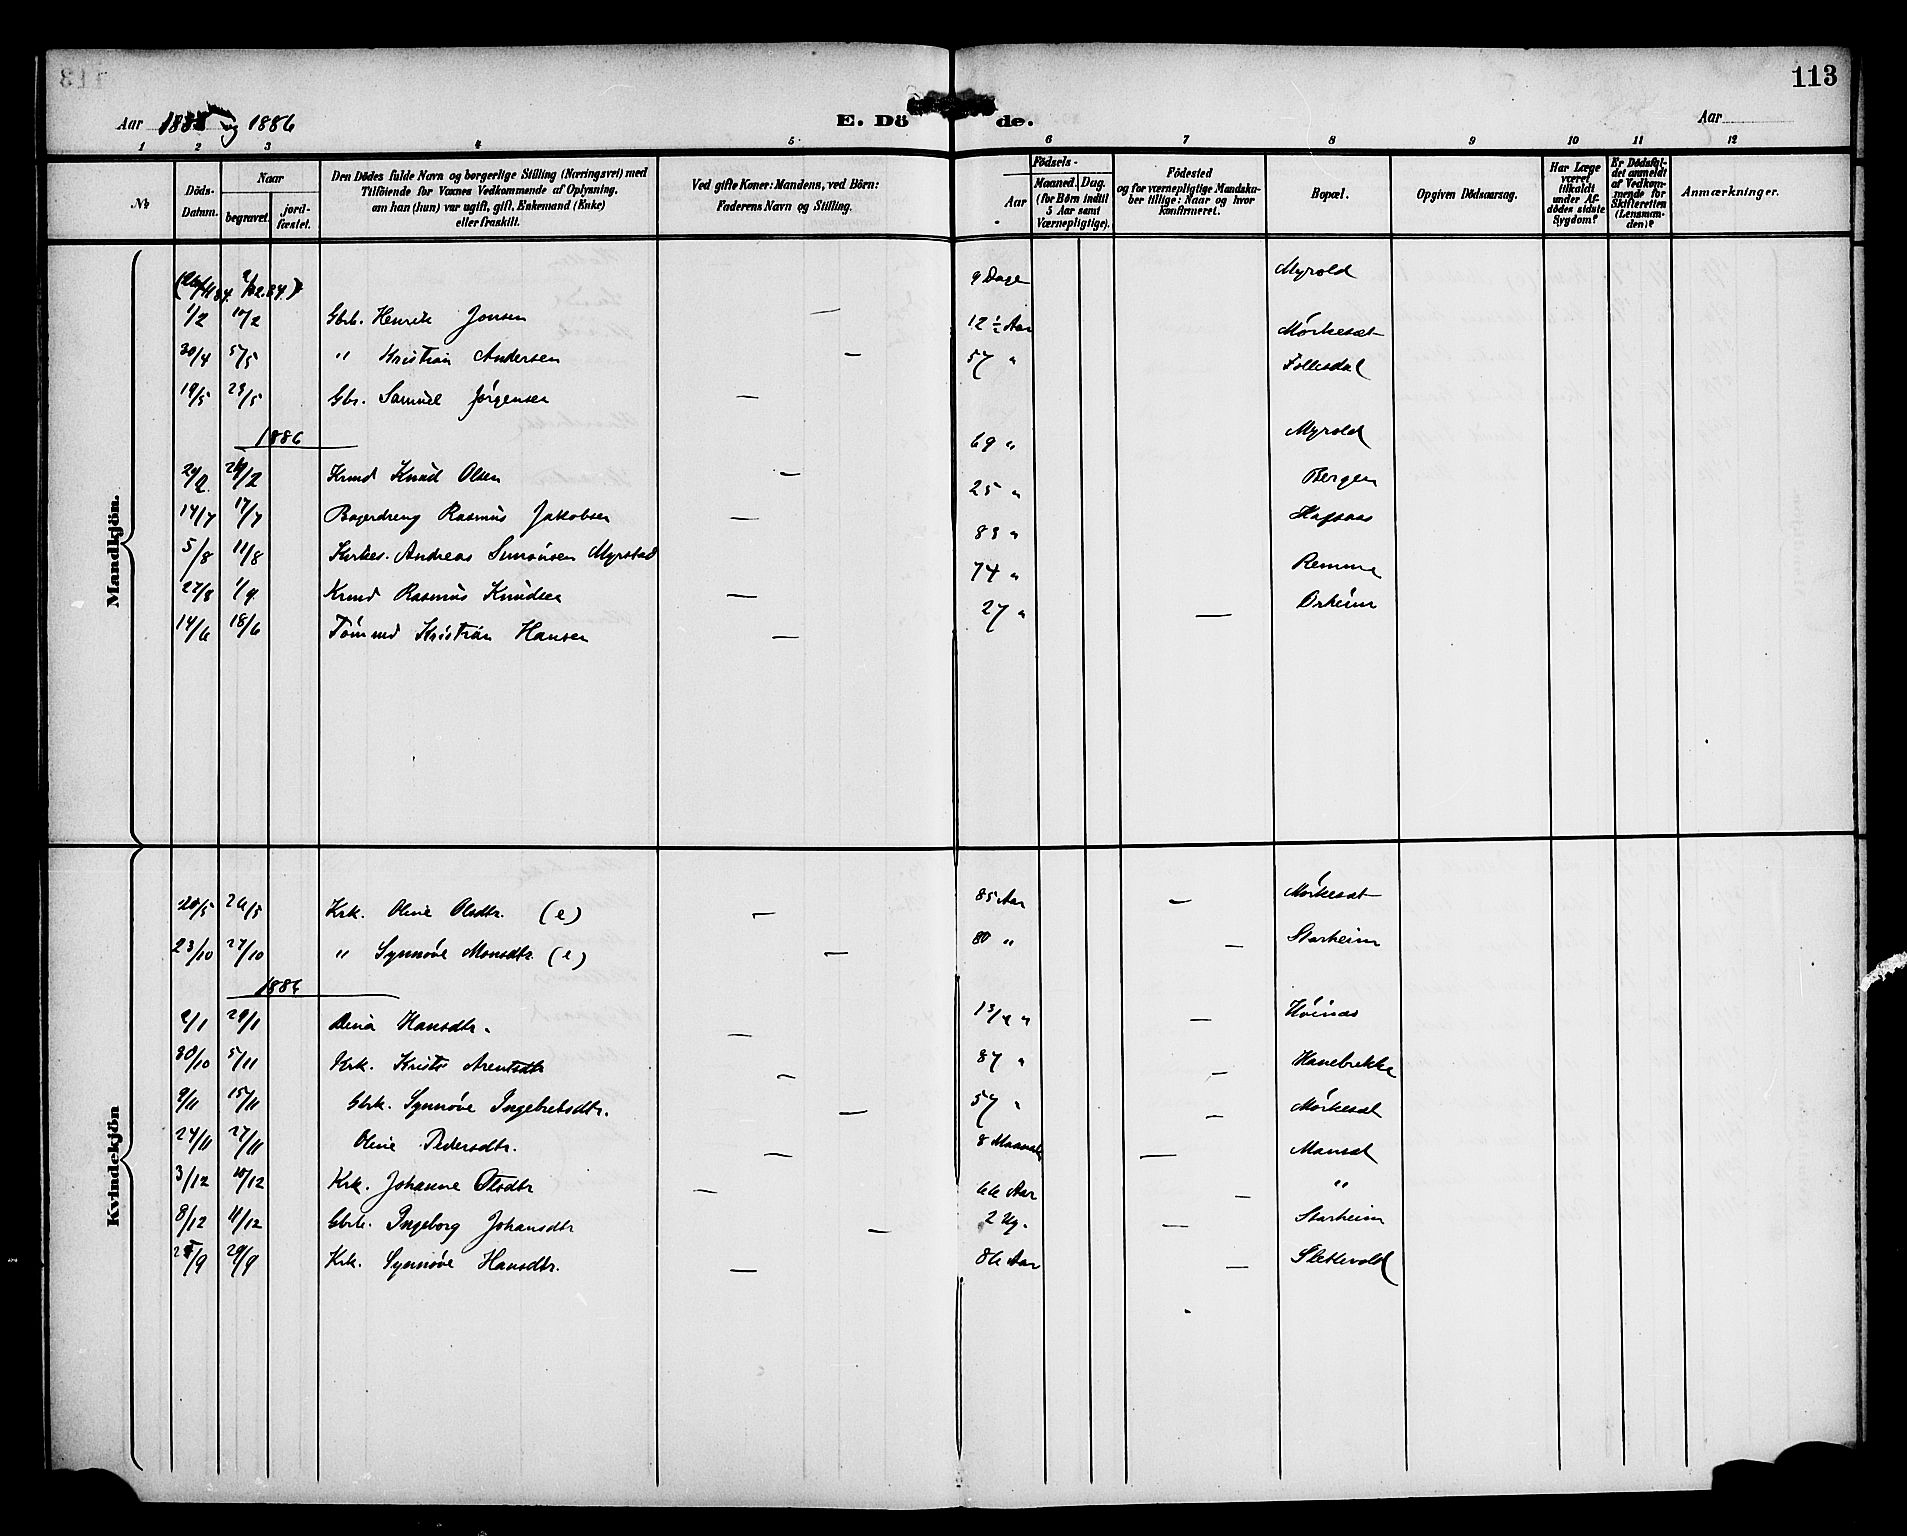 113
Aar 1885 og 1886 E. Dö de. Aar
1 2 3 4 5 6 7 8 9 10 11 12
No
Döds-Datum.
Naar begravet. jord-fæstet.
Den Dödes fulde Navn og borgerlige Stilling (Næringsvei) med Tilföiende for Voxnes Vedkommende af Oplysning, om han (hun) var ugift, gift, Enkemand (Enke) eller fraskilt.
Ved gifte Koner: Mandens, ved Börn: Faderens Navn og Stilling.
Födsels-
Aar Maaned. Dag. (for Börn indtil 5 Aar samt Værnepligtige).
Födested og for værnepligtige Mandskaber tillige: Naar og hvor konfirmeret.
Bopæl.
Opgiven Dödsaarsag.
Har Læge været tilkaldt under Afdödes sidste Sygdom?
Er Dödsfaldet anmeldt af Vedkommende for Skifteretten (Lensmanden)?
Anmærkninger.
Mandkjön.
9 Dage Myrold
1/2 10/2 Gbrb. Henrik Jonsen — 12 1/2 Aar Mörkesæt
30/4 5/5 " Kristian Andersen — 57 " Follesdal
19/5 23/5 Gbr. Samuel Jørgensen —
1886
69 " Myrold
Krmd Knud Olsen — 25 " Bergen
14/7 17/7 Bagerdreng Rasmus Jakobsen — 83 "
5/8 11/8 Kirkes. Andreas Simonsen Myrstad 74 " Remme
27/8 1/9 Krmd Rasmus Knudsen — 27 " — Orheim
14/6 18/6 Tömmd Kristian Hansen —
Kvindekjön
20/5 26/5 Krk. Oline Olsdtr. (e) — 85 Aar — Mörkesæt
23/10 27/10 " Synnøve Monsdtr. (e) — 80 " — Starheim
1886
2/1 29/1 Hansdtr. — " — Höinæs
30/10 5/11 Krk. Kristi Arentsdtr — 87 " — Hanebrekke
9/11 15/11 Gbrk. Synnøve Ingebretsdtr. — 57 " — Mörkesæt
24/11 27/11 Oline Pedersdtr. — 8 Maaneder — Maurset
3/12 10/12 Krk. Johanne Olsdtr — 66 Aar — "
8/12 11/12 Gbrk. Ingeborg Johansdtr — 2 Ug. — Starheim
29/9 Krk. Synnøve Hansdtr. — 86 Aar — Slettevold